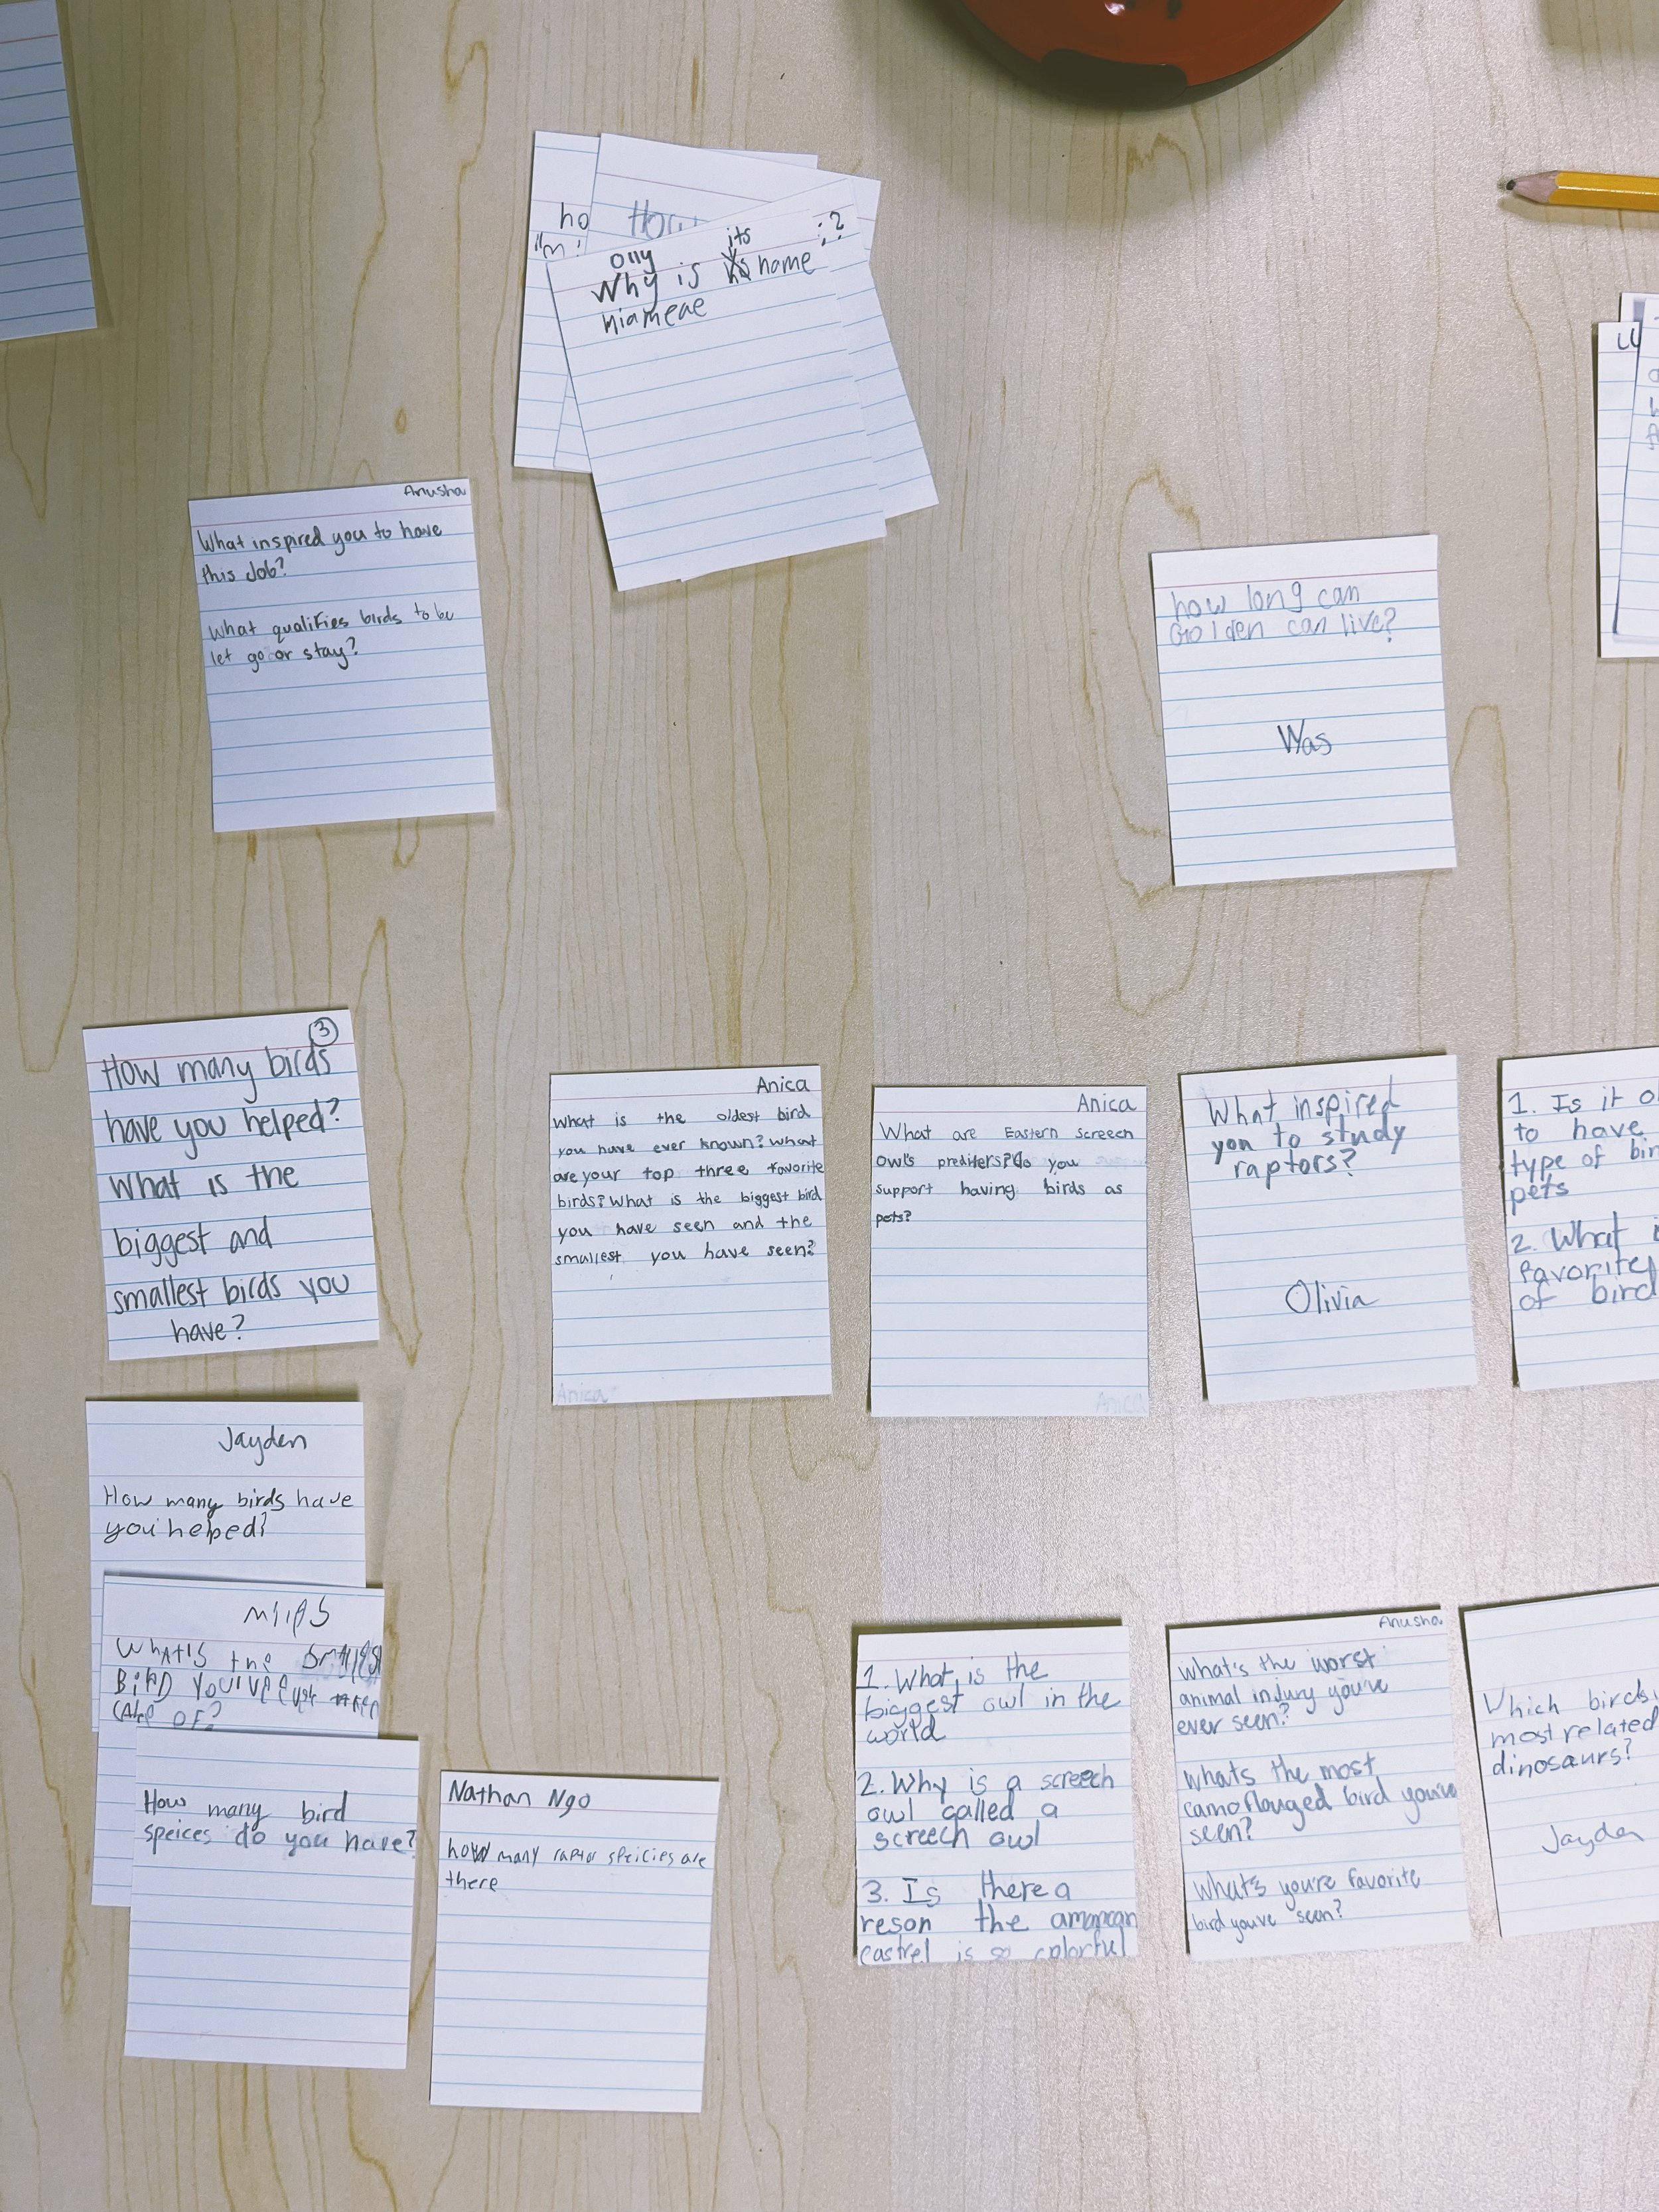 ho
How
Olly
Why is its name
Anusha
What inspired you to have
this Job?
What qualifies birds to be
let go or stay?
how long can
Golden can live?
Was
3
How many birds
have you helped?
What is the
biggest and
smallest birds you
have?
Anica
What is the oldest bird
you have ever known? What
are your top three favorite
birds? What is the biggest bird
you have seen and the
smallest you have seen?
Anica
Anica
What are Eastern screech
owl's prediters? do you
support having birds as
pets?
Anica
What inspired
you to study
raptors?
Olivia
1. Is it
to have
type of
pets
2. What
favorite
of bird
Jayden
How many birds have
you helped?
WhAtIS the
BirD
CAre OF?
How many bird
speices do you have?
Nathan Ngo
how many raptor speicies are
there
1. What is the
biggest owl in the
world
2. Why is a screech
owl called a
screech owl
3. Is there a
reson the
castrel is so colorful
Anusha
What's the worst
animal injury you've
ever seen?
Whats the most
camoflauged bird you've
seen?
What's you're favorite
bird you've seen?
Which birds
most related
dinosaurs?
Jayden